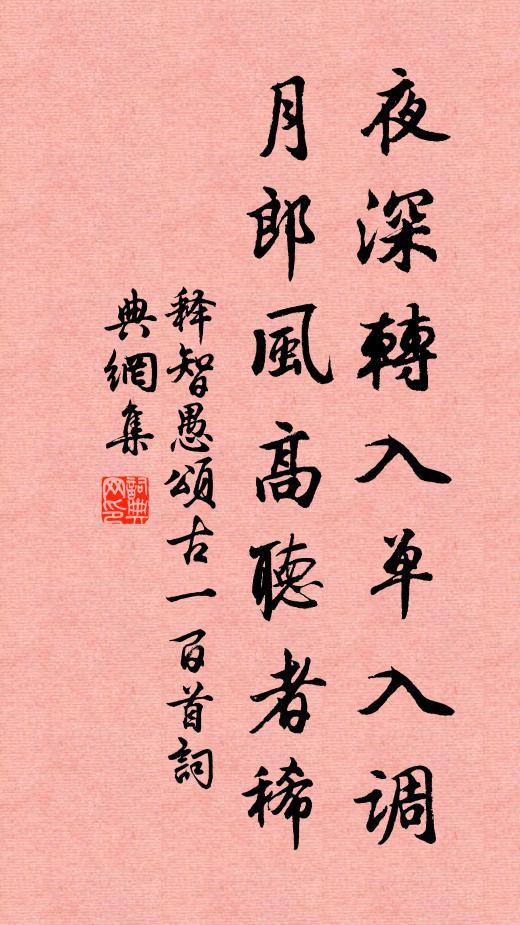 夜深轉入单入调
月郎風高聽者稀
释智愚頌古一百首詞
典網集
詞典网印